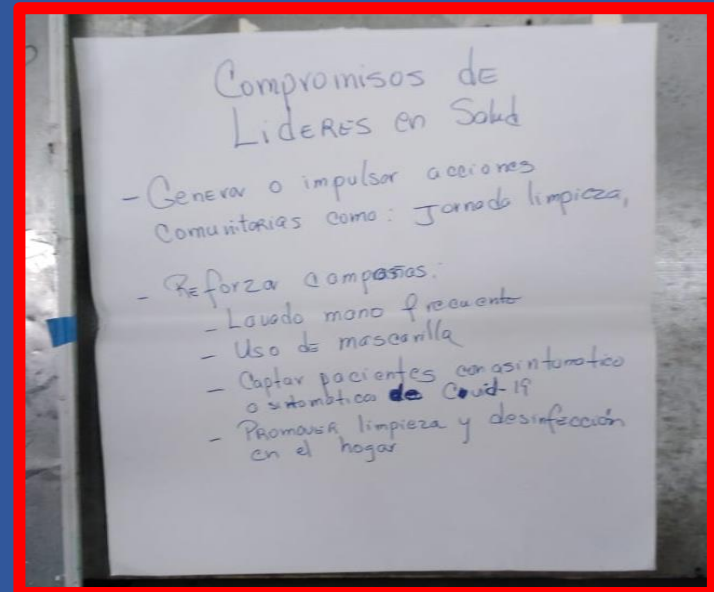 Compromisos de
LidERES en Salud
- Generar o impulsar acciones
Comunitarias como: Jornada limpieza,
- Reforza campañas:
- Lavado mano frecuente
- Uso de mascarilla
- Captar pacientes con asintomatico
o sintomatico de Covid-19
- PRomover limpieza y desinfección
en el hogar